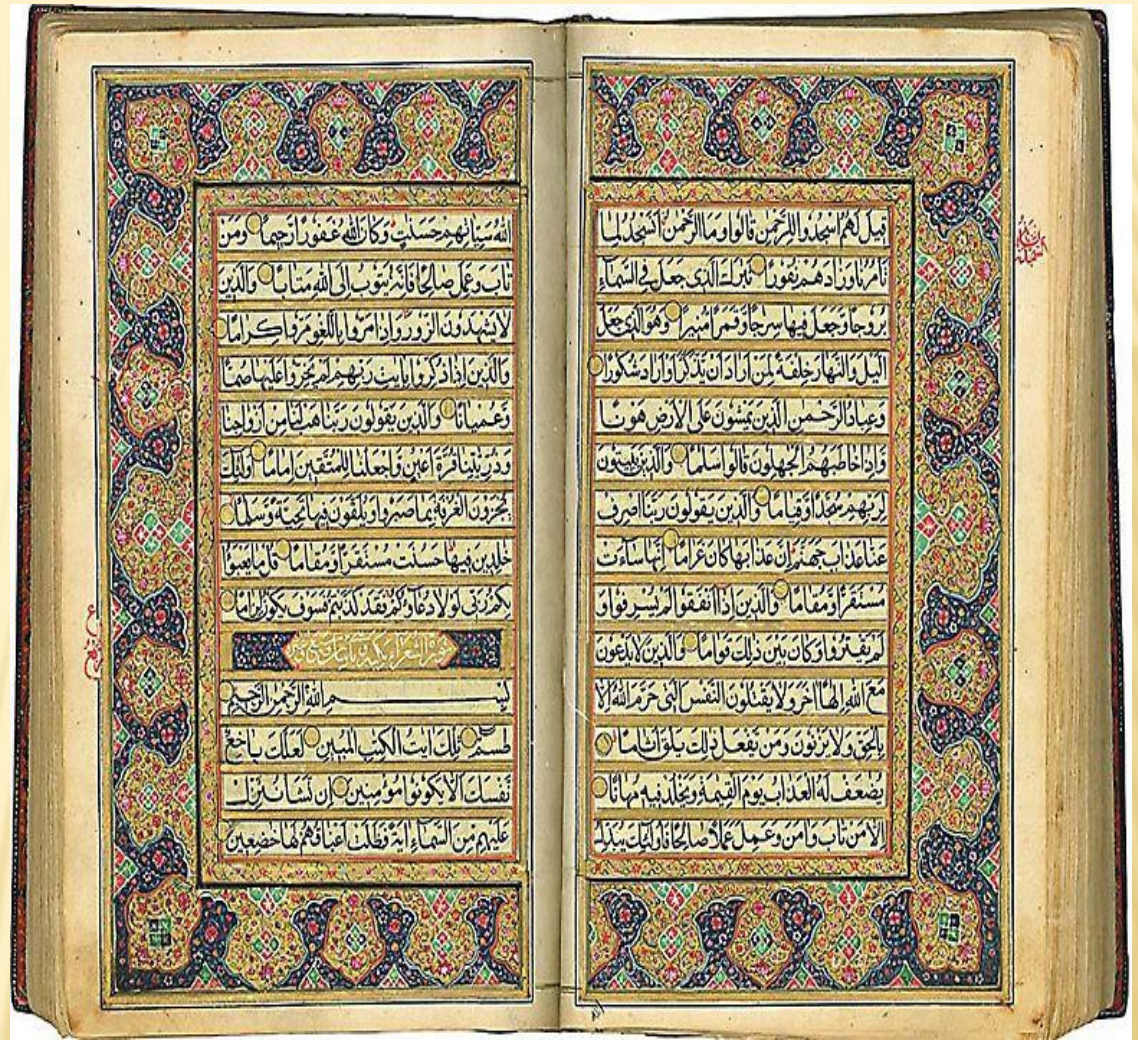 قيل لهم اسجدوا للرحمن قالوا وما الرحمن انسجد لما
تأمرنا وزادهم نفورا تبرك الذى جعل فى السماء
بروجا وجعل فيها سرجا وقمرا منيرا وهو الذى جعل
اليل والنهار خلفة لمن اراد ان يذكر او اراد شكورا
وعباد الرحمن الذين يمشون على الارض هونا
واذا خاطبهم الجهلون قالوا سلما والذين يبيتون
لربهم سجدا وقياما والذين يقولون ربنا اصرف
عنا عذاب جهنم ان عذابها كان غراما انها ساءت
مستقرا ومقاما والذين اذا انفقوا لم يسرفوا و
لم يقتروا وكان بين ذلك قواما والذين لا يدعون
مع الله الها اخر ولا يقتلون النفس التى حرم الله الا
بالحق ولا يزنون ومن يفعل ذلك يلق اثاما
يضعف له العذاب يوم القيمة ويخلد فيه مهانا
الا من تاب وامن وعمل عملا صالحا فاولئك يبدل
الله سياتهم حسنت وكان الله غفورا رحيما ومن
تاب وعمل صالحا فانه يتوب الى الله متابا والذين
لا يشهدون الزور واذا مروا باللغو مروا كراما
والذين اذا ذكروا بايت ربهم لم يخروا عليها صما
وعميانا والذين يقولون ربنا هب لنا من ازواجنا
وذريتنا قرة اعين واجعلنا للمتقين اماما اولئك
يجزون الغرفة بما صبروا ويلقون فيها تحية وسلما
خلدين فيها حسنت مستقرا ومقاما قل ما يعبوا
بكم ربى لولا دعاؤكم فقد كذبتم فسوف يكون لزاما
بسم الله الرحمن الرحيم
طسم تلك ايت الكتب المبين لعلك باخع
نفسك الا يكونوا مؤمنين ان نشا ننزل
عليهم من السماء اية فظلت اعناقهم لها خضعين